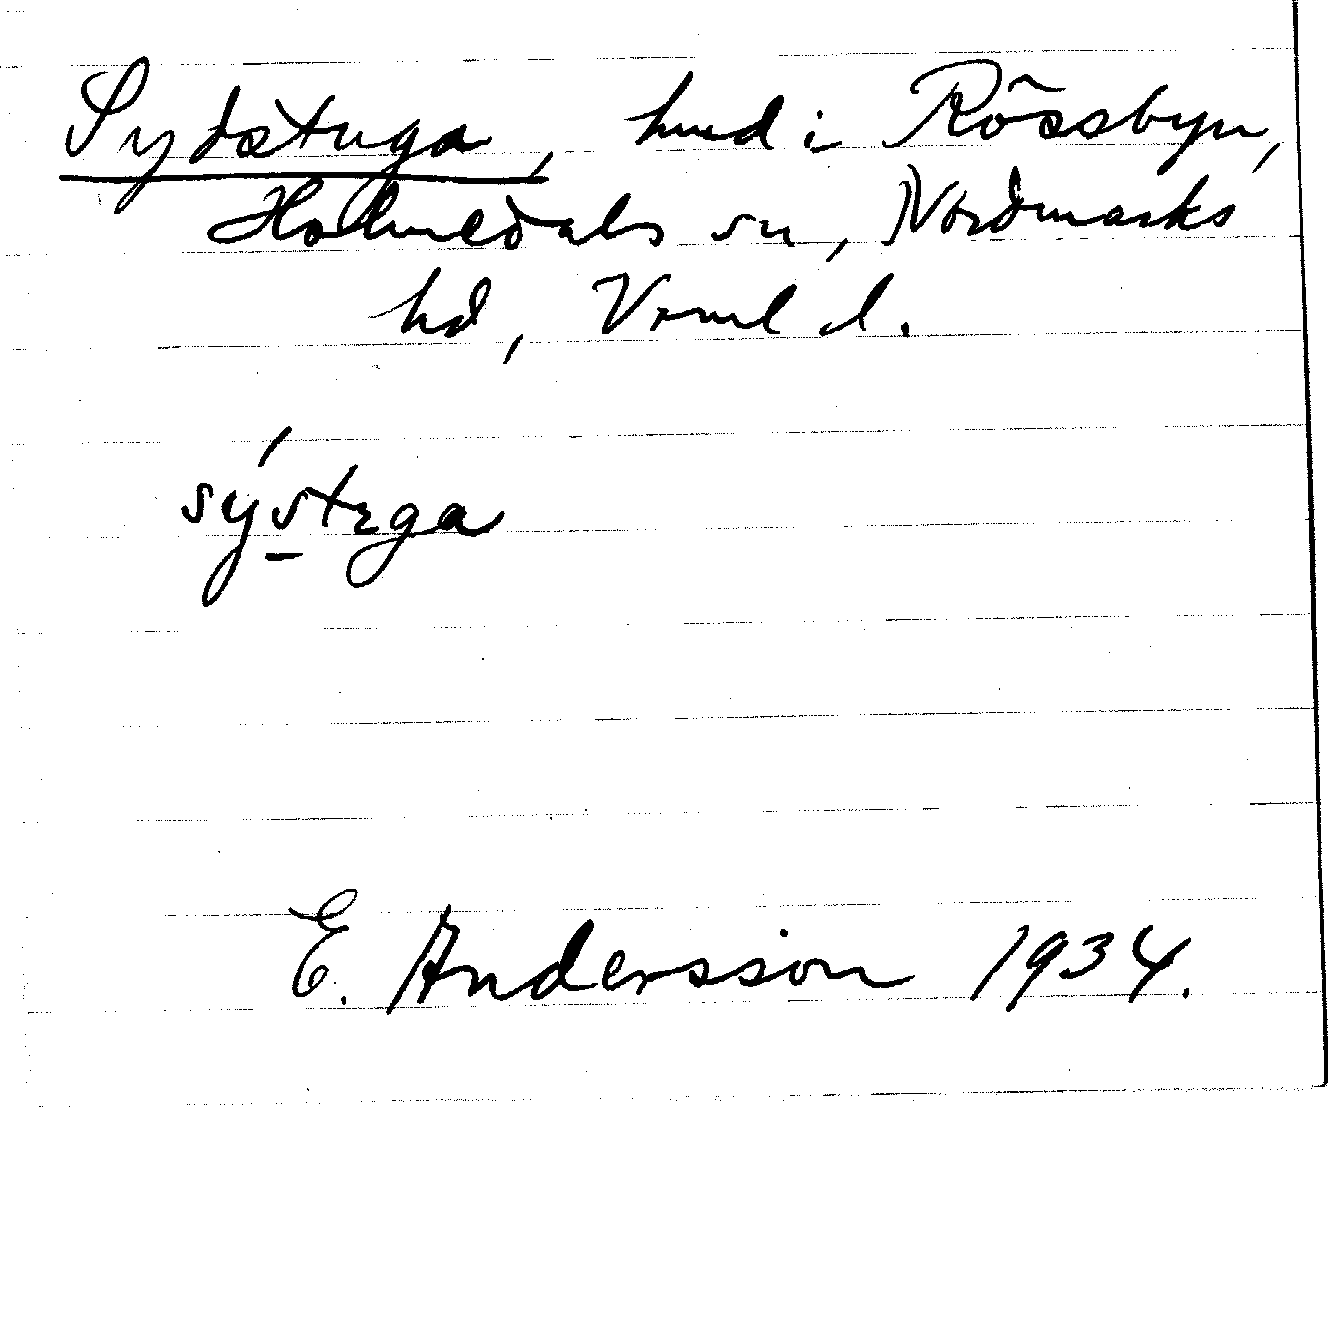 Sydstuga, hmd i Rössbyn,
Holmedals sn, Nordmarks
hd, Vrml d.
systega
E. Andersson 1934.